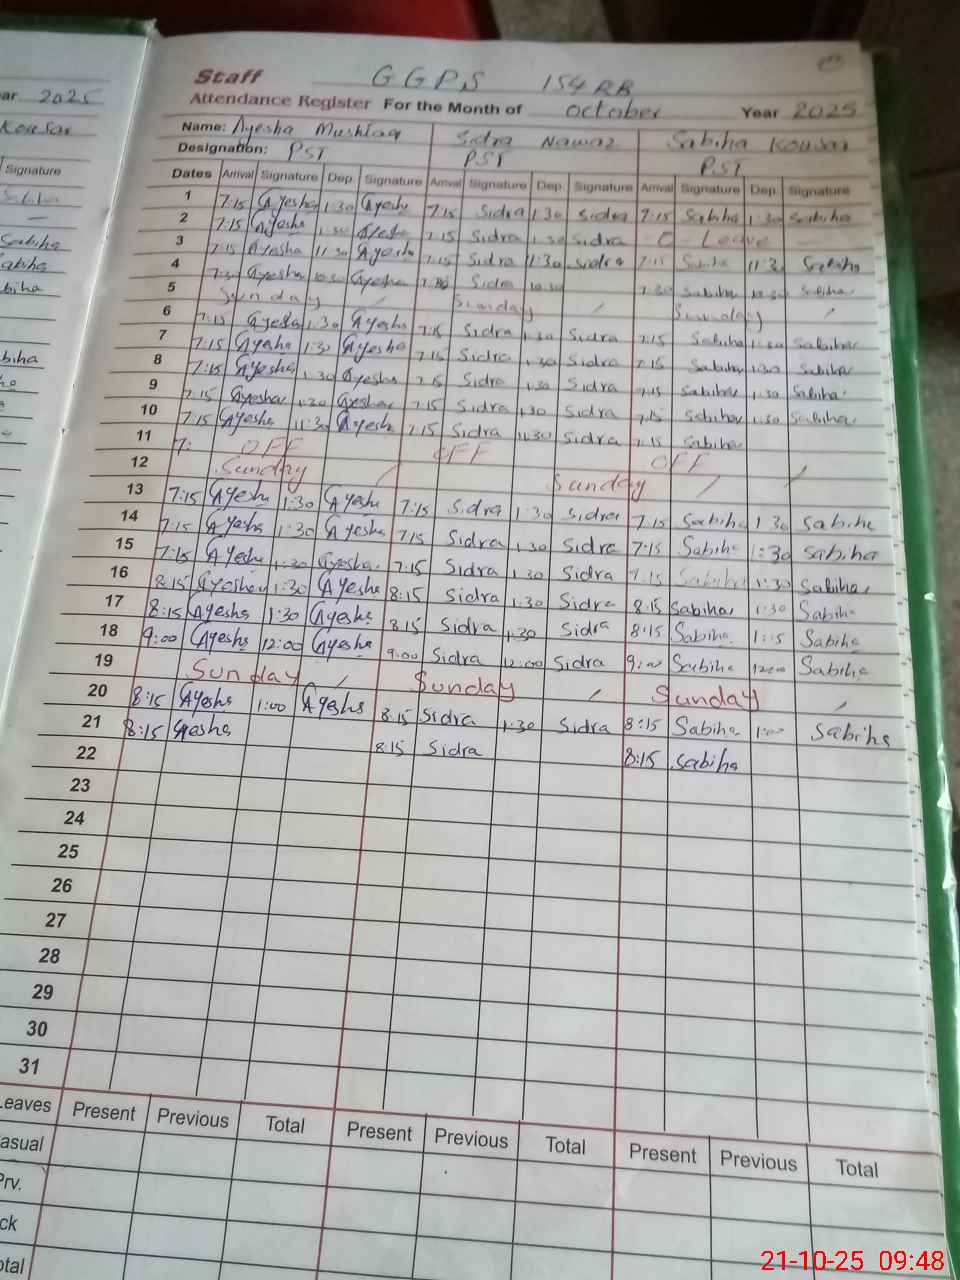 Staff GGPS 154 RB
Attendance Register For the Month of October Year 2025
Name: Ayesha Mushtaq Sidra Nawaz Sabiha Kousar
Designation: PST PST PST
Dates Arrival Signature Dep. Signature Arrival Signature Dep. Signature Arrival Signature Dep. Signature
1 7:15 Ayesha 1:30 Ayesha 7:15 Sidra 1:30 Sidra 7:15 Sabiha 1:30 Sabiha
2 7:15 Ayesha 1:30 Ayesha 7:15 Sidra 1:30 Sidra Leave
3 7:15 Ayesha 11:30 Ayesha 7:15 Sidra 11:30 Sidra 7:15 Sabiha 11:30 Sabiha
4 7:30 Ayesha 10:30 Ayesha Sidra 10:30 7:30 Sabiha 10:30 Sabiha
5 Sunday Sunday Sunday
6 7:15 Ayesha 1:30 Ayesha 7:15 Sidra 1:30 Sidra 7:15 Sabiha 1:30 Sabiha
7 7:15 Ayesha 1:30 Ayesha 7:15 Sidra 1:30 Sidra 7:15 Sabiha 1:30 Sabiha
8 7:15 Ayesha 1:30 Ayesha 7:15 Sidra 1:30 Sidra 7:15 Sabiha 1:30 Sabiha
9 7:15 Ayesha 1:30 Ayesha 7:15 Sidra 1:30 Sidra 7:15 Sabiha 1:30 Sabiha
10 7:15 Ayesha 11:30 Ayesha 7:15 Sidra 11:30 Sidra 7:15 Sabiha
11 7: OFF OFF OFF
12 Sunday Sunday
13 7:15 Ayesha 1:30 Ayesha 7:15 Sidra 1:30 Sidra 7:15 Sabiha 1:30 Sabiha
14 7:15 Ayesha 1:30 Ayesha 7:15 Sidra 1:30 Sidra 7:15 Sabiha 1:30 Sabiha
15 7:15 Ayesha 1:30 Ayesha 7:15 Sidra 1:30 Sidra 7:15 Sabiha 1:30 Sabiha
16 8:15 Ayesha 1:30 Ayesha 8:15 Sidra 1:30 Sidra 8:15 Sabiha 1:30 Sabiha
17 8:15 Ayesha 1:30 Ayesha 8:15 Sidra 1:30 Sidra 8:15 Sabiha 1:15 Sabiha
18 9:00 Ayesha 12:00 Ayesha 9:00 Sidra 12:00 Sidra 9:00 Sabiha 12:00 Sabiha
19 Sunday Sunday Sunday
20 8:15 Ayesha 1:00 Ayesha 8:15 Sidra 1:30 Sidra 8:15 Sabiha 1:00 Sabiha
21 8:15 Ayesha 8:15 Sidra 8:15 Sabiha
22
23
24
25
26
27
28
29
30
31
Leaves Present Previous Total Present Previous Total Present Previous Total
asual
Prv.
ck
otal
ar 2025
Kousar
Signature
Sabiha
Sabiha
abiha
biha
biha
21-10-25 09:48